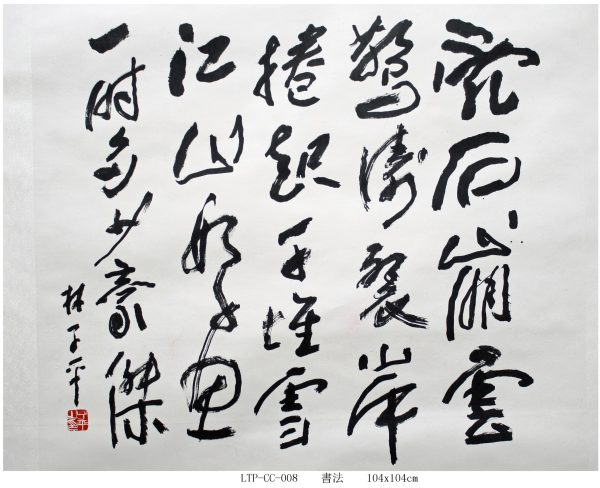 亂石崩雲
驚濤裂岸
捲起千堆雪
江山如畫
一時多少豪傑
林子平
LTP-CC-008 書法 104x104cm